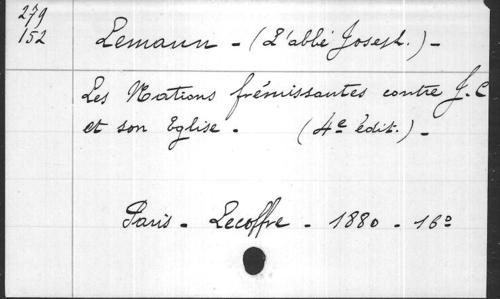 279
152
Lemann - (L'abbé Joseph.) -
Les Nations frémissantes contre J. C
et son Eglise. (4e édit.) -
Paris - Lecoffre - 1880 - 16º